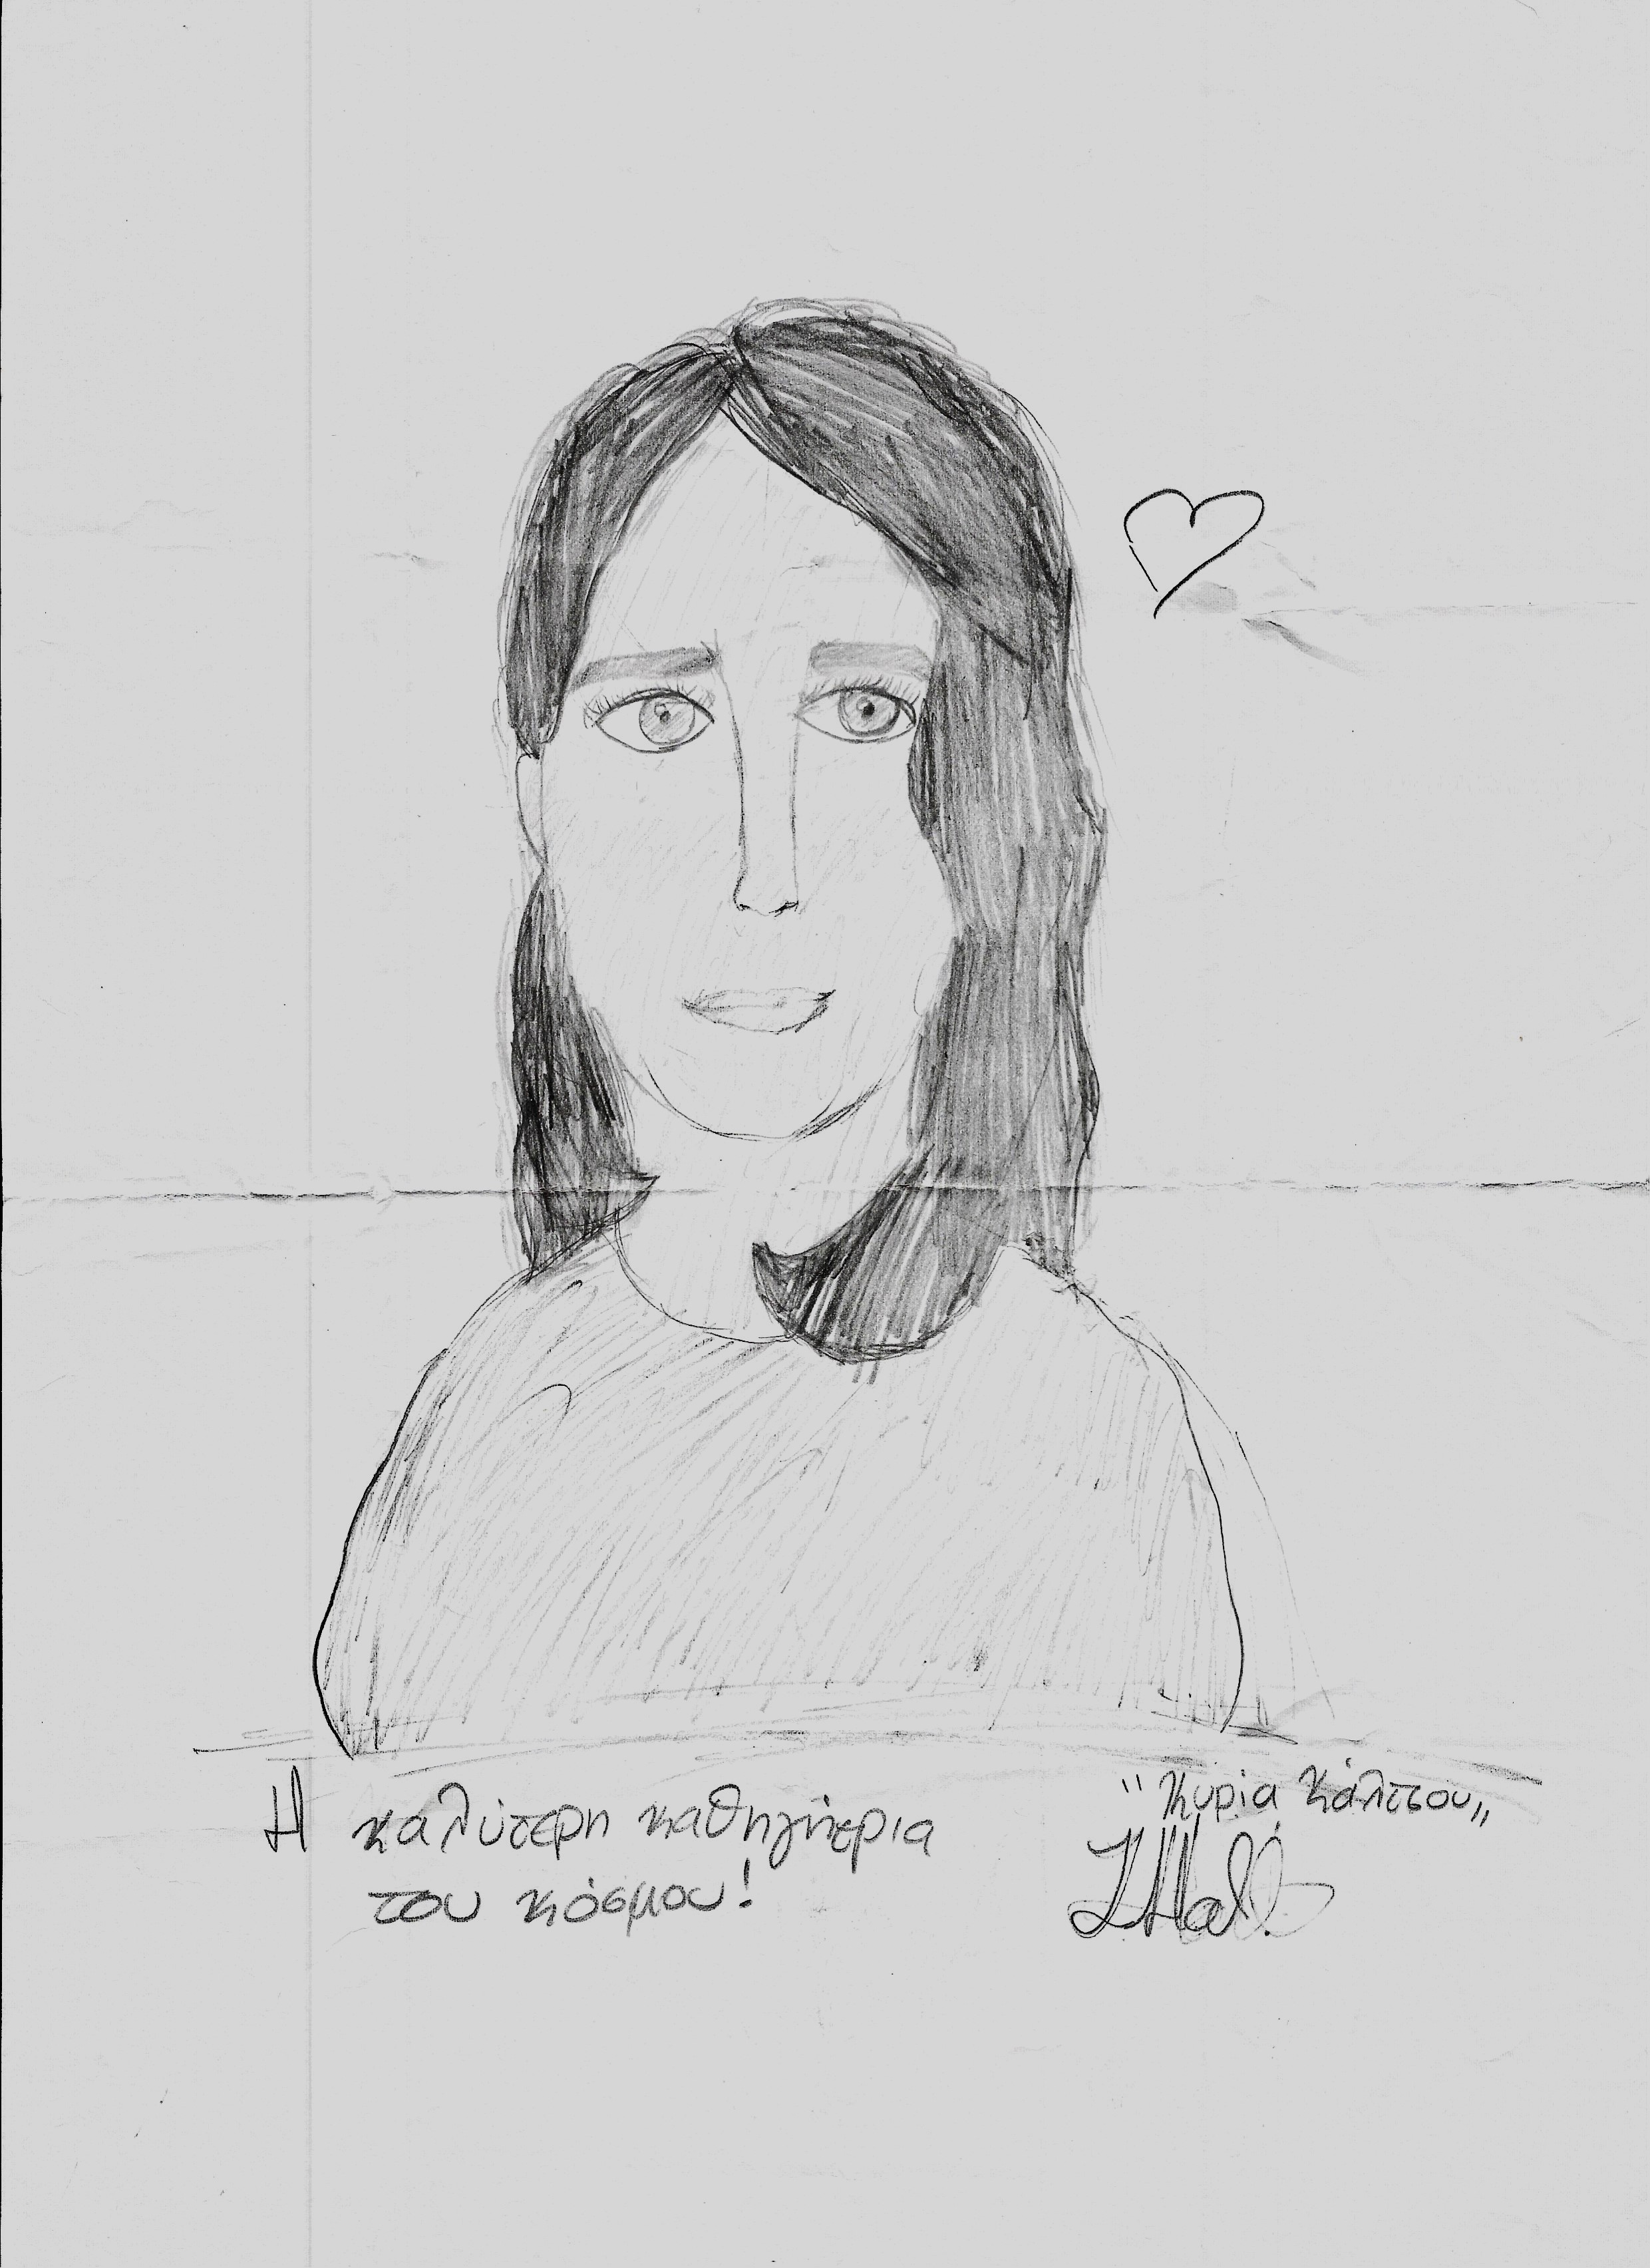 Η καλύτερη καθηγήτρια
του κόσμου!
"Κυρία Κάλτσου„